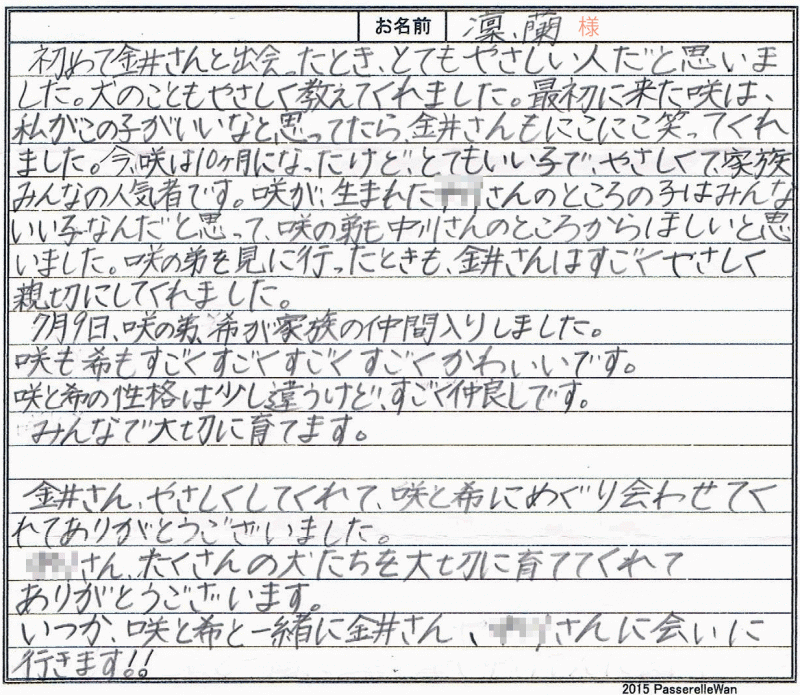 お名前 凜、蘭 様
初めて金井さんと出会ったとき、とてもやさしい人だと思いま
した。犬のこともやさしく教えてくれました。最初に来た咲は、
私がこの子がいいなと思ってたら、金井さんもにこにこ笑ってくれ
ました。今、咲は10ヶ月になったけど、とてもいい子で、やさしくて、家族
みんなの人気者です。咲が、生まれた さんのところの子はみんな
いい子なんだと思って、咲の弟も中川さんのところからほしいと思
いました。咲の弟を見に行ったときも、金井さんはすごくやさしく
親切にしてくれました。
7月9日、咲の弟、希が家族の仲間入りしました。
咲も希もすごくすごくすごくすごくかわいいです。
咲と希の性格は少し違うけど、すごく仲良しです。
みんなで大切に育てます。
金井さん、やさしくしてくれて、咲と希にめぐり会わせてく
れてありがとうございました。
さん、たくさんの犬たちを大切に育ててくれて
ありがとうございます。
いつか、咲と希と一緒に金井さん、 さんに会いに
行きます!!
2015 PasserelleWan